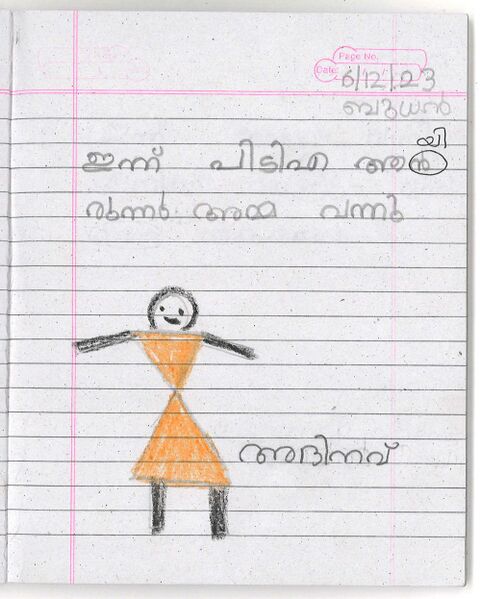 Page No.
Date: 6/12/23
ബുധൻ
യി
ഇന്ന് പിടിഎ ആൻ
രുന്നു. അമ്മ വന്നു
അഭിനവ്